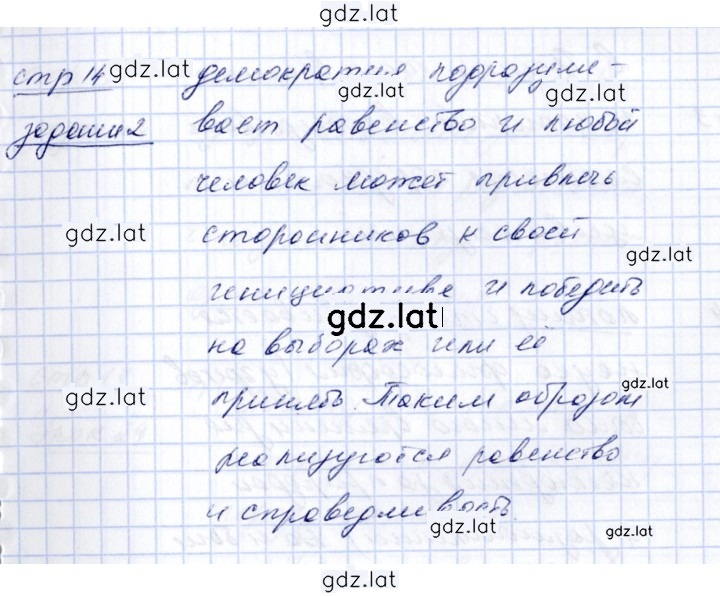 gdz.lat
стр 14 gdz.lat демократия подразуме-
gdz.lat gdz.lat
задание 2 вает равенство и любой
человек может привлечь
gdz.lat сторонников к своей gdz.lat
инициативе и победить
gdz.lat
на выборах или её
gdz.lat принять. Таким образом gdz.lat
реализуются равенство
и справедливость.
gdz.lat gdz.lat
gdz.lat